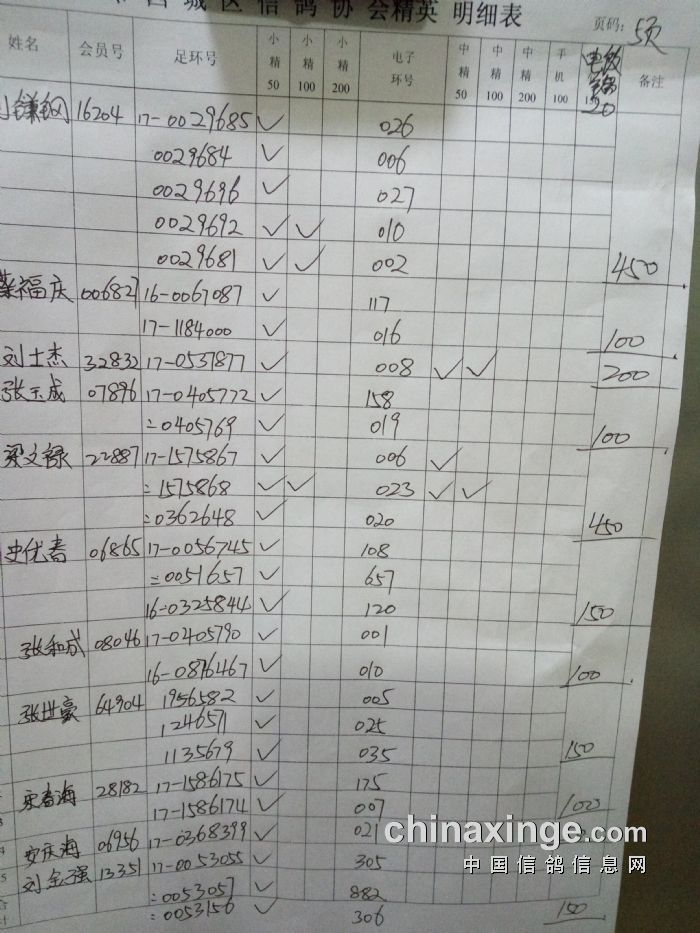 西城区信鸽协会精英 明细表
页码: 5页
姓名 会员号 足环号 小精50 小精100 小精200 电子环号 中精50 中精100 中精200 手机100 备注
16204 17-0029685 ✓ 026
0029684 ✓ 006
0029696 ✓ 027
0029692 ✓ ✓ 010
0029681 ✓ ✓ 002 450
福庆 00682 16-0067087 ✓ 117
17-1184000 ✓ 016 100
刘士杰 32832 17-0537877 ✓ 008 ✓ ✓ 200
张玉成 07896 17-0405772 ✓ 158
=0405769 ✓ 019 100
梁文禄 22887 17-1575867 ✓ 006 ✓
=1575868 ✓ ✓ 023 ✓ ✓
=0362648 ✓ 020 450
史优春 06865 17-0056745 ✓ 108
=0051657 ✓ 657
16-0325844 ✓ 120 150
张和成 08046 17-0405790 ✓ 001
16-0876467 ✓ 010 100
张世豪 64904 1956582 ✓ 005
1246571 ✓ 025
1135679 ✓ 035 150
宋春海 28182 17-1586175 ✓ 175
17-1586174 ✓ 007 100
安庆海 06956 17-0368399 ✓ 021
刘金强 13351 17-0053055 ✓ 305
=0053057 ✓ 882
=0053156 ✓ 306 150
chinaxinge.com
中国信鸽信息网